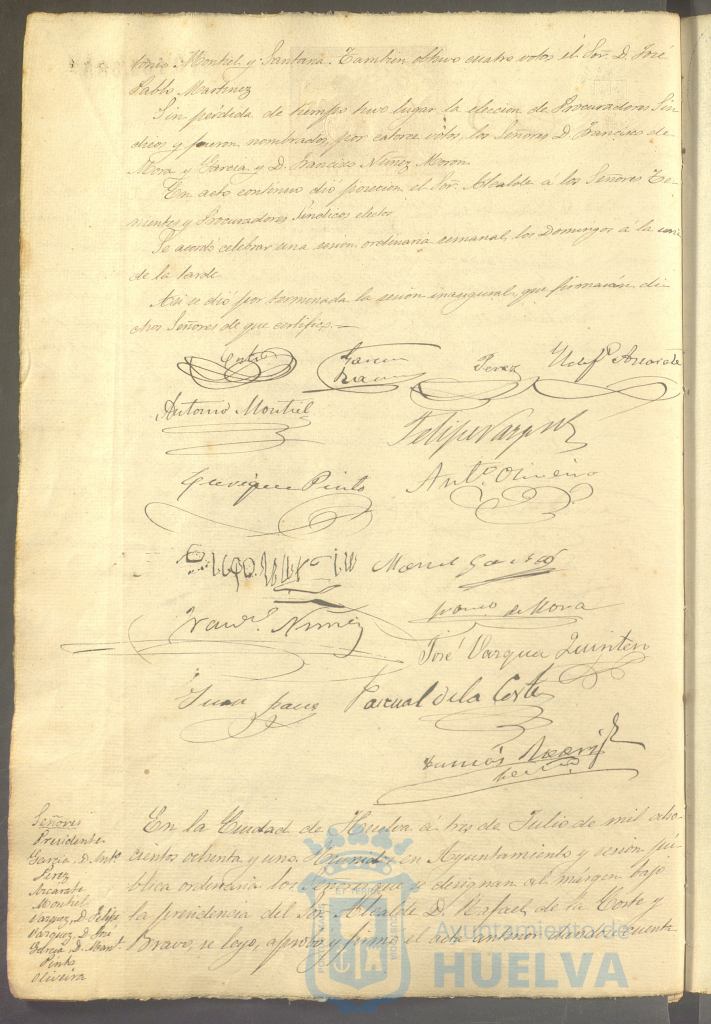 tonio Montiel y Santana. Tambien obtuvo cuatro votos el Sor. D. José
Pablo Martinez
Sin pérdida de tiempo tuvo lugar la eleccion de Procuradores Sin-
dicos y fueron nombrados por catorce votos los Señores D. Francisco de
Mora y Garcia y D. Francisco Nuñez Moron.
En acto continuo dió posesion el Sor. Alcalde á los Señores Te-
nientes y Procuradores Sindicos electos
Se acordó celebrar una sesion ordinaria semanal, los Domingos á la una
de la tarde
Asi se dió por terminada la sesion inaugural, que firmarán di-
chos Señores de que certifico.—
Corte
Garcia
Perez
Ildefº Arcarate
Antonio Montiel
Felipe Vazquez
Enrique Pinto
Antº Oliveira
Manuel Garcia
Franco de Mora
Francº Nuñez
José Vazquez Quintero
Juan
Pascual de la Corte
Señores
Presidente
Garcia, D. Antº
Perez
Arcárate
Montiel
Vazquez, D. Felipe
Vazquez, D. José
Garcia, D. Manl
Pinto
Oliveira
En la Ciudad de Huelva á tres de Julio de mil ocho-
cientos ochenta y uno. Reunidos en Ayuntamiento y sesion pú-
blica ordinaria los Señores que se designan al márgen bajo
la presidencia del Sor. Alcalde D. Rafael de la Corte y
Bravo, se leyó, aprobó y firmó el acta anterior dandose cuenta
Ayuntamiento de
HUELVA